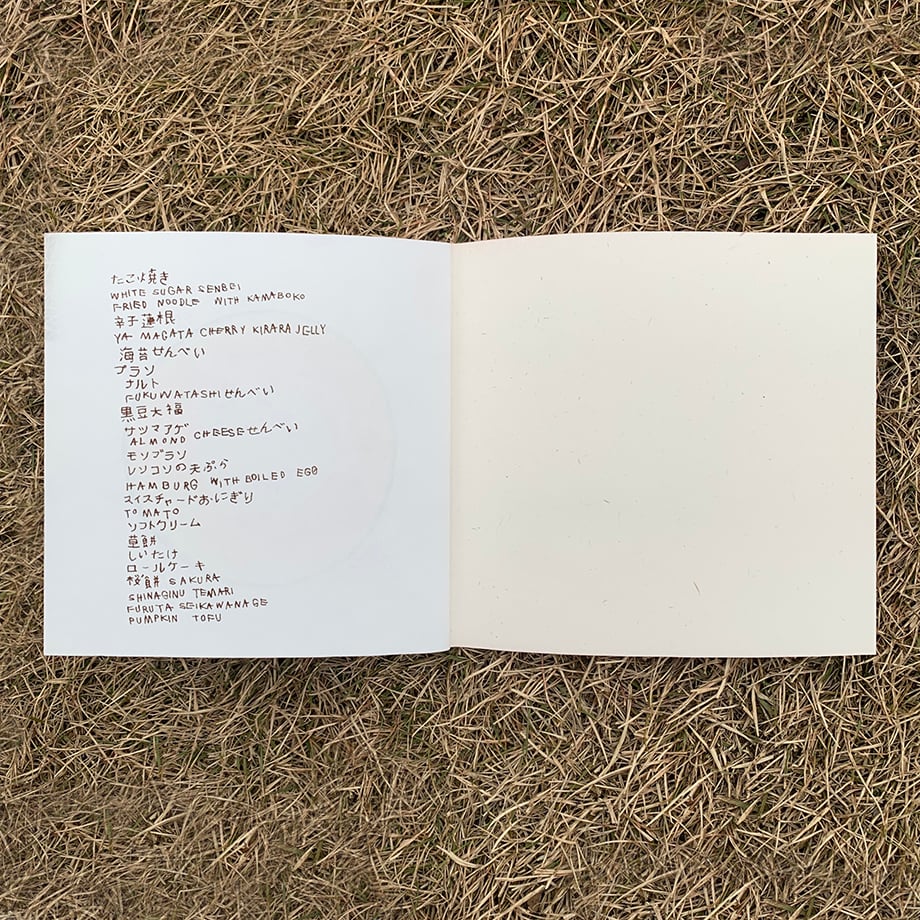 たこ焼き
WHITE SUGAR SENBEI
FRIED NOODLE WITH KAMABOKO
辛子蓮根
YAMAGATA CHERRY KIRARA JELLY
海苔せんべい
プラソ
ナルト
FUKUWATASHIせんべい
黒豆大福
サツマアゲ
ALMOND CHEESEせんべい
モソブラソ
レソコソの天ぷら
HAMBURG WITH BOILED EGG
スイスチャードおにぎり
TOMATO
ソフトクリーム
草餅
しいたけ
ロールケーキ
桜餅 SAKURA
SHINAGINU TEMARI
FURUTA SEIKAWANAGE
PUMPKIN TOFU